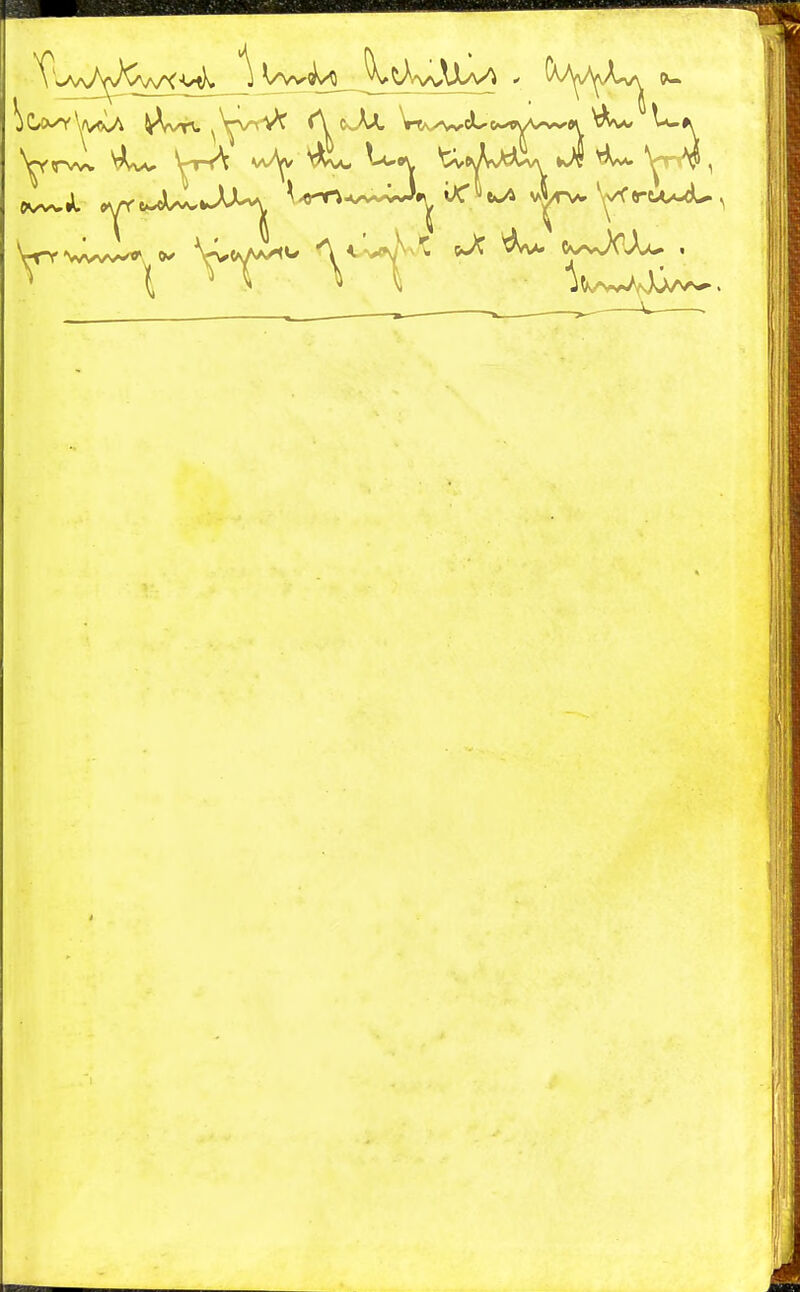 Ruptured Tendo Achillis. Apply a
Scarpa's Shoe, first of all bandaging the leg
from the foot up the leg tightly at the foot,
and gradually loosening it as you proceed,
a at the ankle.